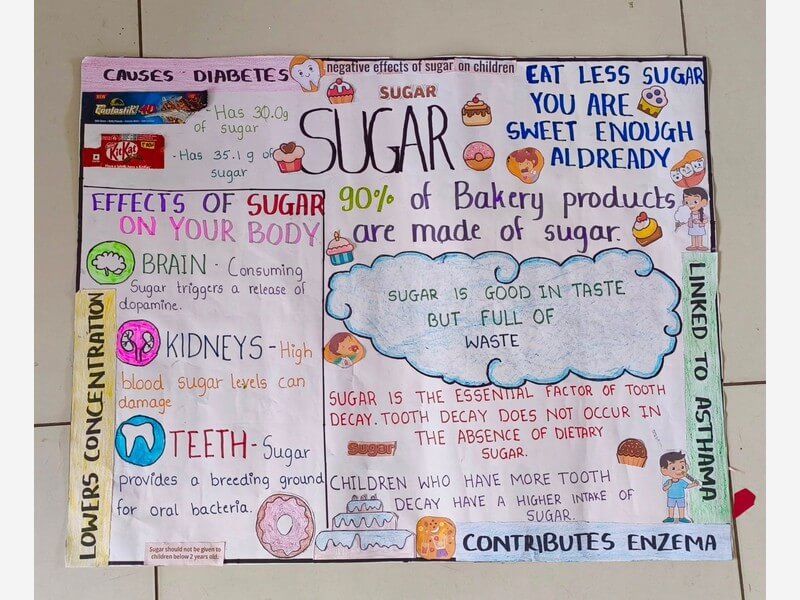 CAUSES DIABETES
negative effects of sugar on children
SUGAR
EAT LESS SUGAR
YOU ARE
SWEET ENOUGH
ALDREADY
Fantastik
- Has 30.0g
of sugar
KitKat
- Has 35.1 g of
sugar
SUGAR
90% of Bakery products
are made of sugar.
EFFECTS OF SUGAR
ON YOUR BODY
BRAIN - Consuming
Sugar triggers a release of
dopamine.
KIDNEYS - High
blood sugar levels can
damage
TEETH - Sugar
provides a breeding ground
for oral bacteria.
Sugar should not be given to
children below 2 years old.
LOWERS CONCENTRATION
SUGAR IS GOOD IN TASTE
BUT FULL OF
WASTE
SUGAR IS THE ESSENTIAL FACTOR OF TOOTH
DECAY. TOOTH DECAY DOES NOT OCCUR IN
THE ABSENCE OF DIETARY
SUGAR.
Sugar
CHILDREN WHO HAVE MORE TOOTH
DECAY HAVE A HIGHER INTAKE OF
SUGAR.
LINKED TO ASTHAMA
CONTRIBUTES ENZEMA